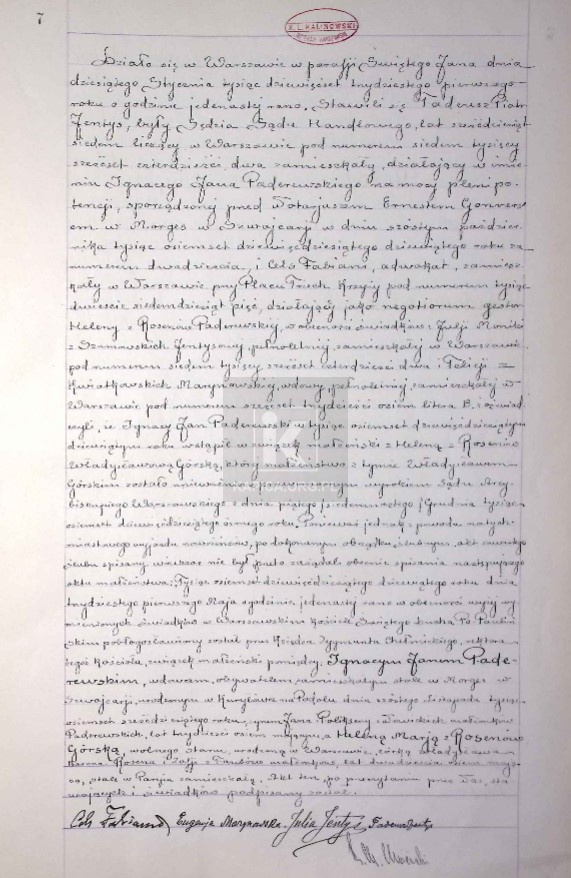 7
K. L. KALINOWSKI
Działo się w Warszawie w parafji Świętego Jana dnia
dziesiątego Stycznia tysiąc dziewięćset trzydziestego pierwszego
roku o godzinie jedenastej rano. Stawili się Tadeusz Piotr
Jentys, były Sędzia Sądu Handlowego, lat sześćdziesiąt
siedem liczący, w Warszawie pod numerem siedem tysięcy
sześćset czterdzieści dwa zamieszkały, działający w imie-
niu Ignacego Jana Paderewskiego na mocy pleni po-
tencji, sporządzonej przed Notarjuszem Ernestem Gonvers-
em w Morges w Szwajcarji w dniu szóstym paździer-
nika tysiąc osiemset dziewięćdziesiątego dziewiątego roku za
numerem dwudziestu, i Cels Fabiani, adwokat, zamiesz-
kały w Warszawie przy Placu Trzech Krzyży pod numerem tysiąc
dwieście siedemdziesiąt pięć, działający jako negotiorum gestor
Heleny z Rosenów Paderewskiej, w obecności świadków: Julji Moniki
z Szymanowskich Jentysowej, pełnoletniej, zamieszkałej w Warszawie
pod numerem siedem tysięcy sześćset czterdzieści dwa i Felicji z
Kwiatkowskich Marynowskiej, wdowy, pełnoletniej, zamieszkałej w
Warszawie pod numerem sześćset trzydzieści osiem litera B. i oświad-
czyli, że Ignacy Jan Paderewski w tysiąc osiemset dziewięćdziesiątym
dziewiątym roku wstąpił w związek małżeński z Heleną z Rosenów
Władysławową Górską, której małżeństwo z tymże Władysławem
Górskim zostało unieważnione prawomocnym wyrokiem Sądu Arcy-
biskupiego Warszawskiego z dnia piątego /siedemnastego/ Grudnia tysiąc
osiemset dziewięćdziesiątego ósmego roku. Ponieważ jednak z powodu natych-
miastowego wyjazdu nowożeńców, po dokonanym obrzędzie ślubnym, akt zawartego
ślubu spisany wówczas nie był, przeto zażądali obecnie spisania następującego
aktu małżeństwa: Tysiąc osiemset dziewięćdziesiątego dziewiątego roku dnia
trzydziestego pierwszego Maja o godzinie jedenastej rano w obecności wyżej wy-
mienionych świadków w Warszawskim kościele Świętego Ducha Po-Pauliń-
skim pobłogosławiony został przez Księdza Zygmunta Chełmickiego, rektora
tegoż kościoła, związek małżeński pomiędzy: Ignacym Janem Pade-
rewskim, wdowcem, obywatelem, zamieszkałym stale w Morges w
Szwajcarji, urodzonym w Kuryłówce na Podolu dnia szóstego listopada tysiąc
osiemset sześćdziesiątego roku, synem Jana i Polikseny z Nowickich małżonków
Paderewskich, lat trzydzieści osiem mającym, a Heleną Marją z Rosenów
Górską, wolnego stanu, urodzoną w Warszawie, córką Władysława
Rosena i Zofji z małżonków, lat dwadzieścia osiem mają-
cą, stale w Paryżu zamieszkałą. Akt ten, po przeczytaniu przez Nas, sta-
wających i świadków podpisany został.
Cels Fabiani Eugenja Marynowska. Julia Jentys Tadeusz Jentys